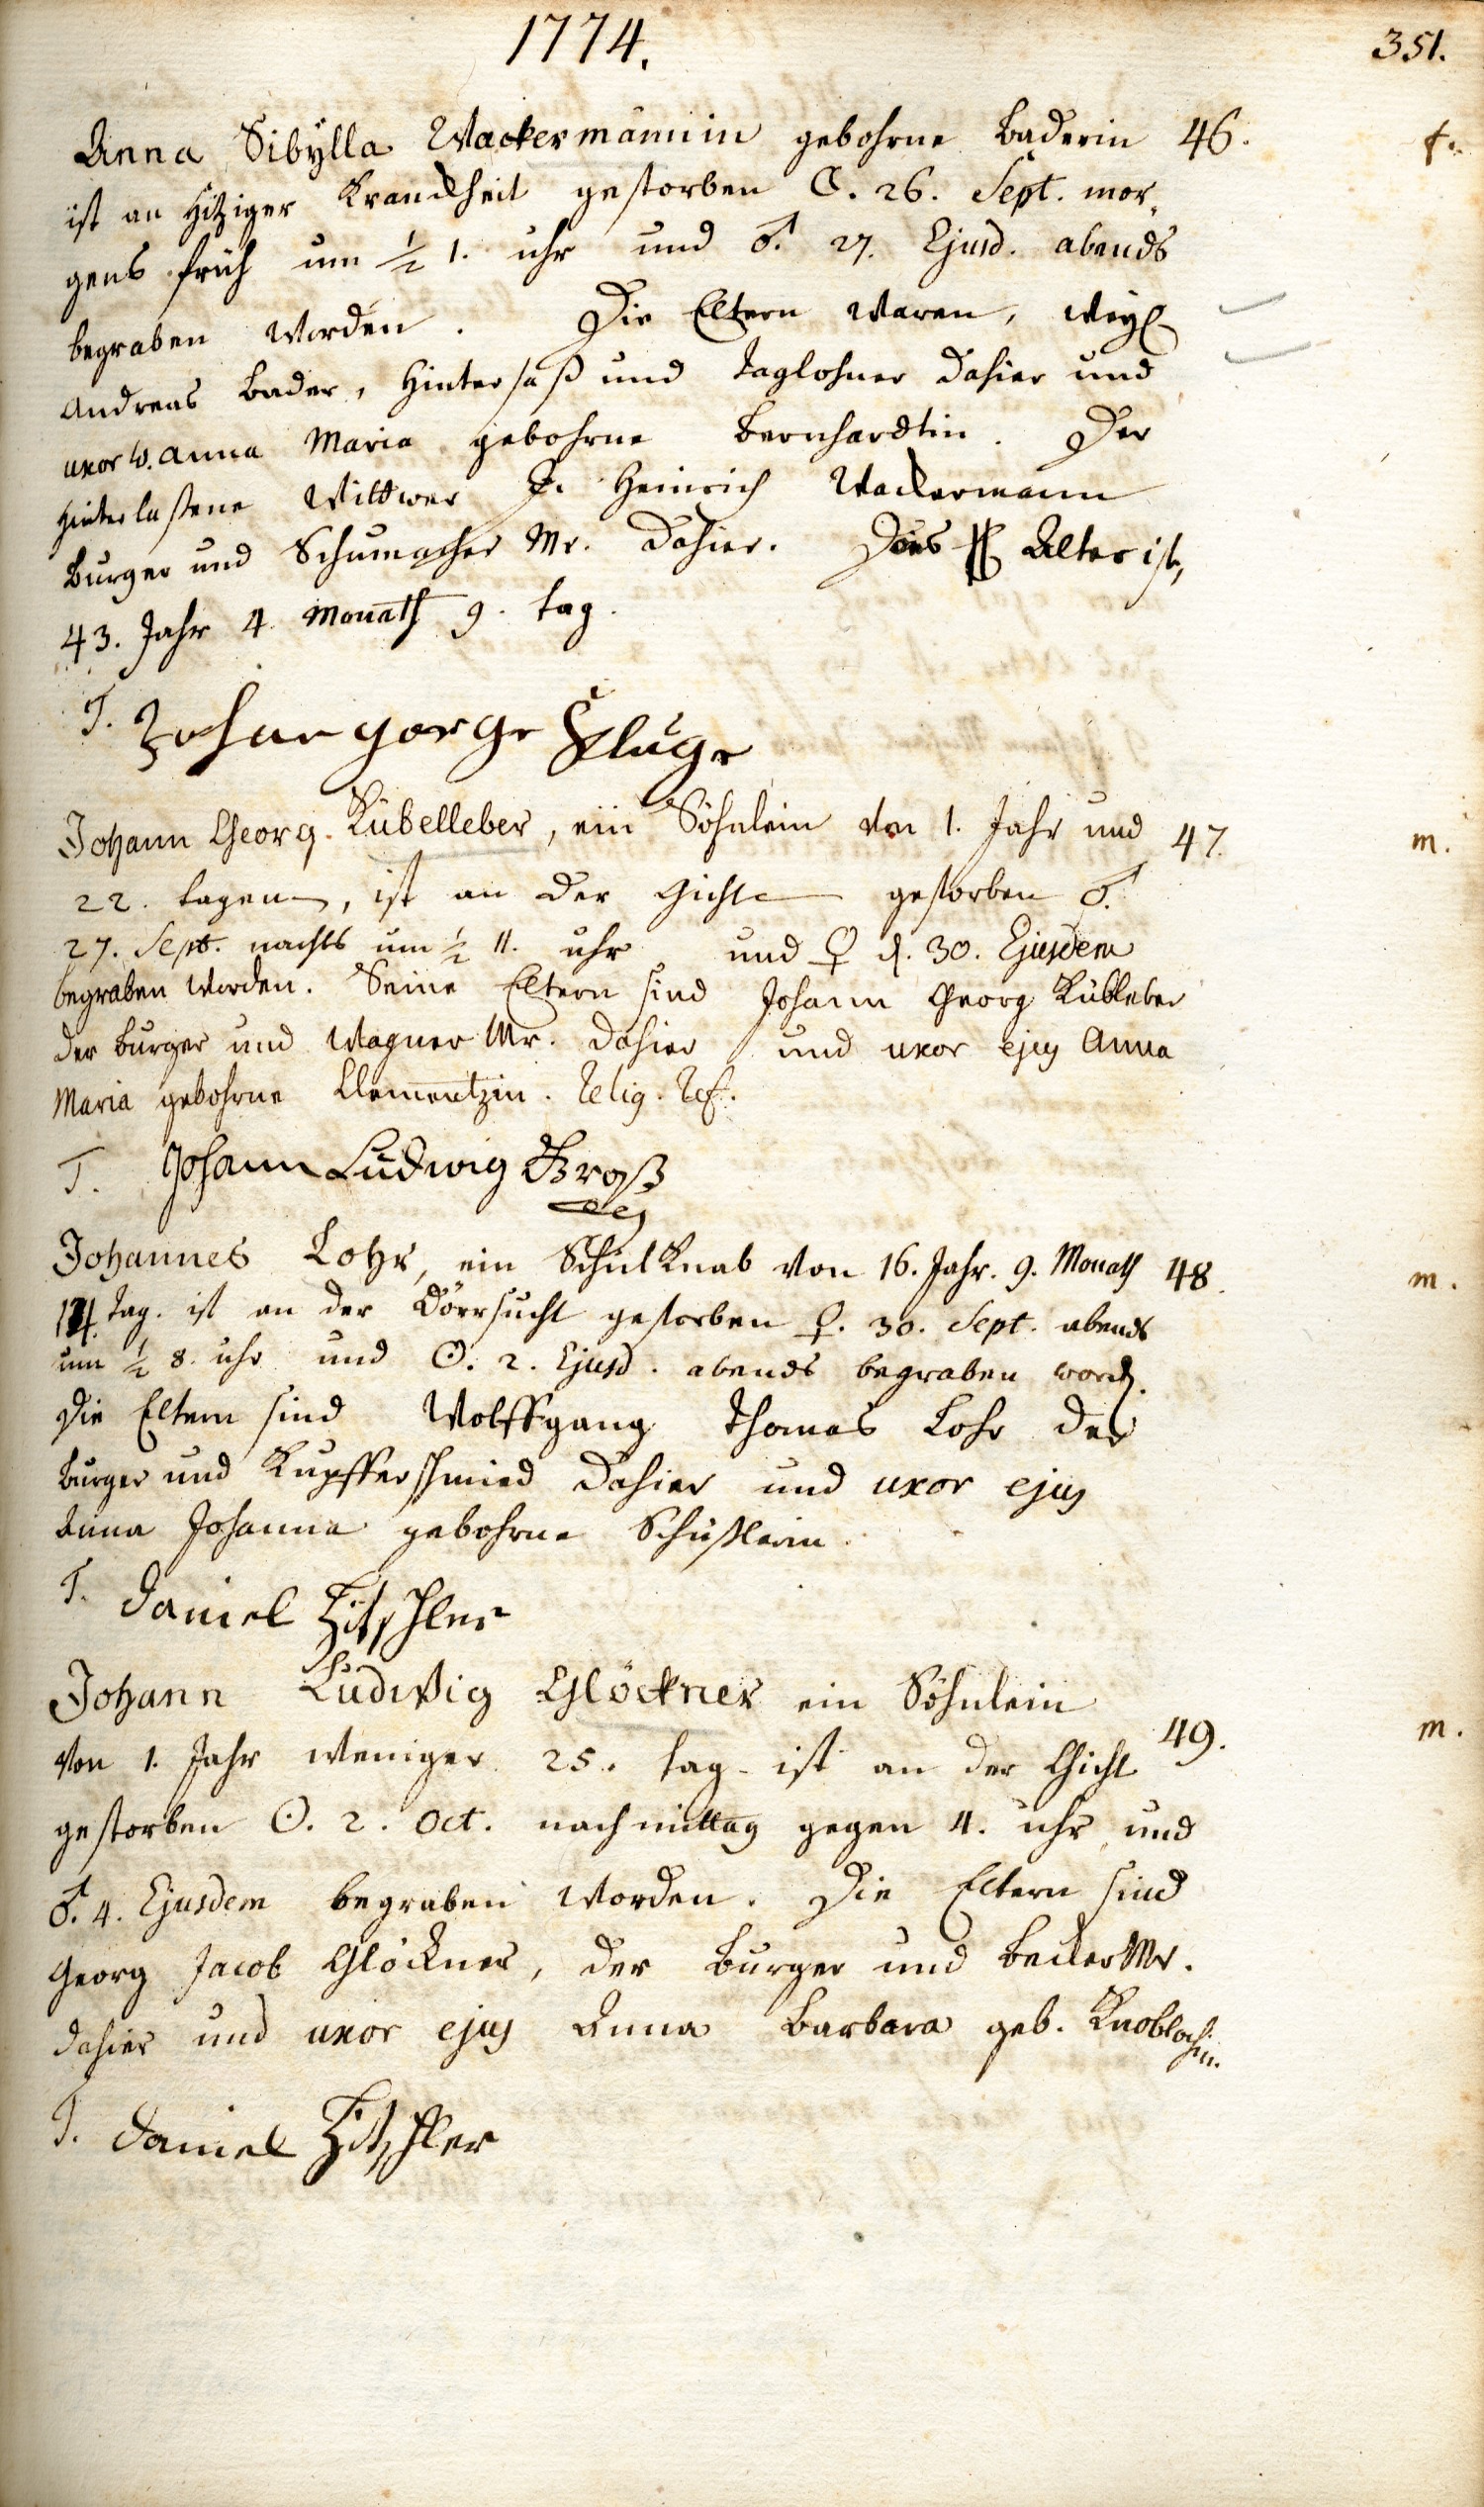 1774.
351.
Anna Sibÿlla Wackermännin gebohrne Baderin 46. f.
ist an hitziger Kranckheit gestorben ☾. 26. Sept. mor,
gens früh um ½ 1. uhr und ♂. 27. Ejusd. abends
begraben worden. Die Eltern waren, weyl.
Andreas Bader, Hintersaß und Taglohner dahier und
uxor Anna Maria gebohrne Bernhardtin. Der
hinterlaßene Wittwer J. Heinrich Wackermann
Burger und Schumacher Mr. dahier. Alter ist,
43. Jahr 4. Monath 9. tag.
T. Johan gorge Kluge
Johann Georg Kübelleber, ein Söhnlein von 1. Jahr und 47. m.
22. tagen, ist an der Gicht gestorben ♂.
27. Sept. nachts um ½ 11. uhr und ♀ d. 30. Ejusdem
begraben worden. Seine Eltern sind Johann Georg Kübleber
der Burger und Wagner Mr. dahier und uxor ejus Anna
Maria gebohrne Clementzin. Relig. Ref.
T. Johann Ludwig Groß
Johannes Lohr, ein Schul Knab von 16. Jahr. 9. Monath 48. m.
14. Tag. ist an der Dörrsucht gestorben ♀. 30. Sept. abends
um ½ 8. uhr und ☉. 2. Ejusd. abends begraben word.
Die Eltern sind Wolffgang Thomas Lohr der
Burger und Kupfferschmied dahier und uxor ejus
Anna Johanna gebohrne Schüßlerin.
T. Daniel Zitschler
Johann Ludwig Glöckner ein Söhnlein
von 1. Jahr weniger 25. tag ist an der Gicht 49. m.
gestorben ☉. 2. Oct. nachmittag gegen 4. uhr und
♂. 4. Ejusdem begraben worden. Die Eltern sind
Georg Jacob Glöckner, der Burger und Becker Mr.
dahier und uxor ejus Anna Barbara geb. Knoblochin.
T. Daniel Zitschler